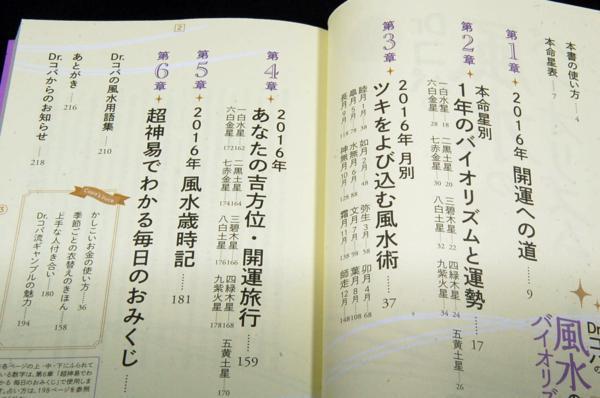 本書の使い方……4
本命星表……7
第1章 2016年 開運への道……9
第2章 本命星別
1年のバイオリズムと運勢……17
一白水星 18 二黒土星 20 三碧木星 22 四緑木星 24 五黄土星 26
六白金星 28 七赤金星 30 八白土星 32 九紫火星 34
第3章 2016年 月別
ツキをよび込む風水術……37
睦月 1月 38 如月 2月 48 弥生 3月 58 卯月 4月 68
皐月 5月 78 水無月 6月 88 文月 7月 98 葉月 8月 108
長月 9月 118 神無月 10月 128 霜月 11月 138 師走 12月 148
第4章 2016年
あなたの吉方位・開運旅行……159
一白水星 162 二黒土星 164 三碧木星 166 四緑木星 168 五黄土星 170
六白金星 172 七赤金星 174 八白土星 176 九紫火星 178
第5章 2016年 風水歳時記……181
第6章 超神易でわかる毎日のおみくじ……
Dr.コパの風水用語集……210
あとがき……216
Dr.コパからのお知らせ……218
Copa's Juice
かしこいお金の使い方……36
季節ごとの衣替えのきほん……158
上手な人付き合い……180
Dr.コパ流ギャンブルの魅力……194
各ページの上・中・下にふられて
いる数字は、第6章「超神易でわ
かる 毎日のおみくじ」で使用しま
す。占い方は、198ページを参照
2
Dr.コパの
風水の
バイオリズ